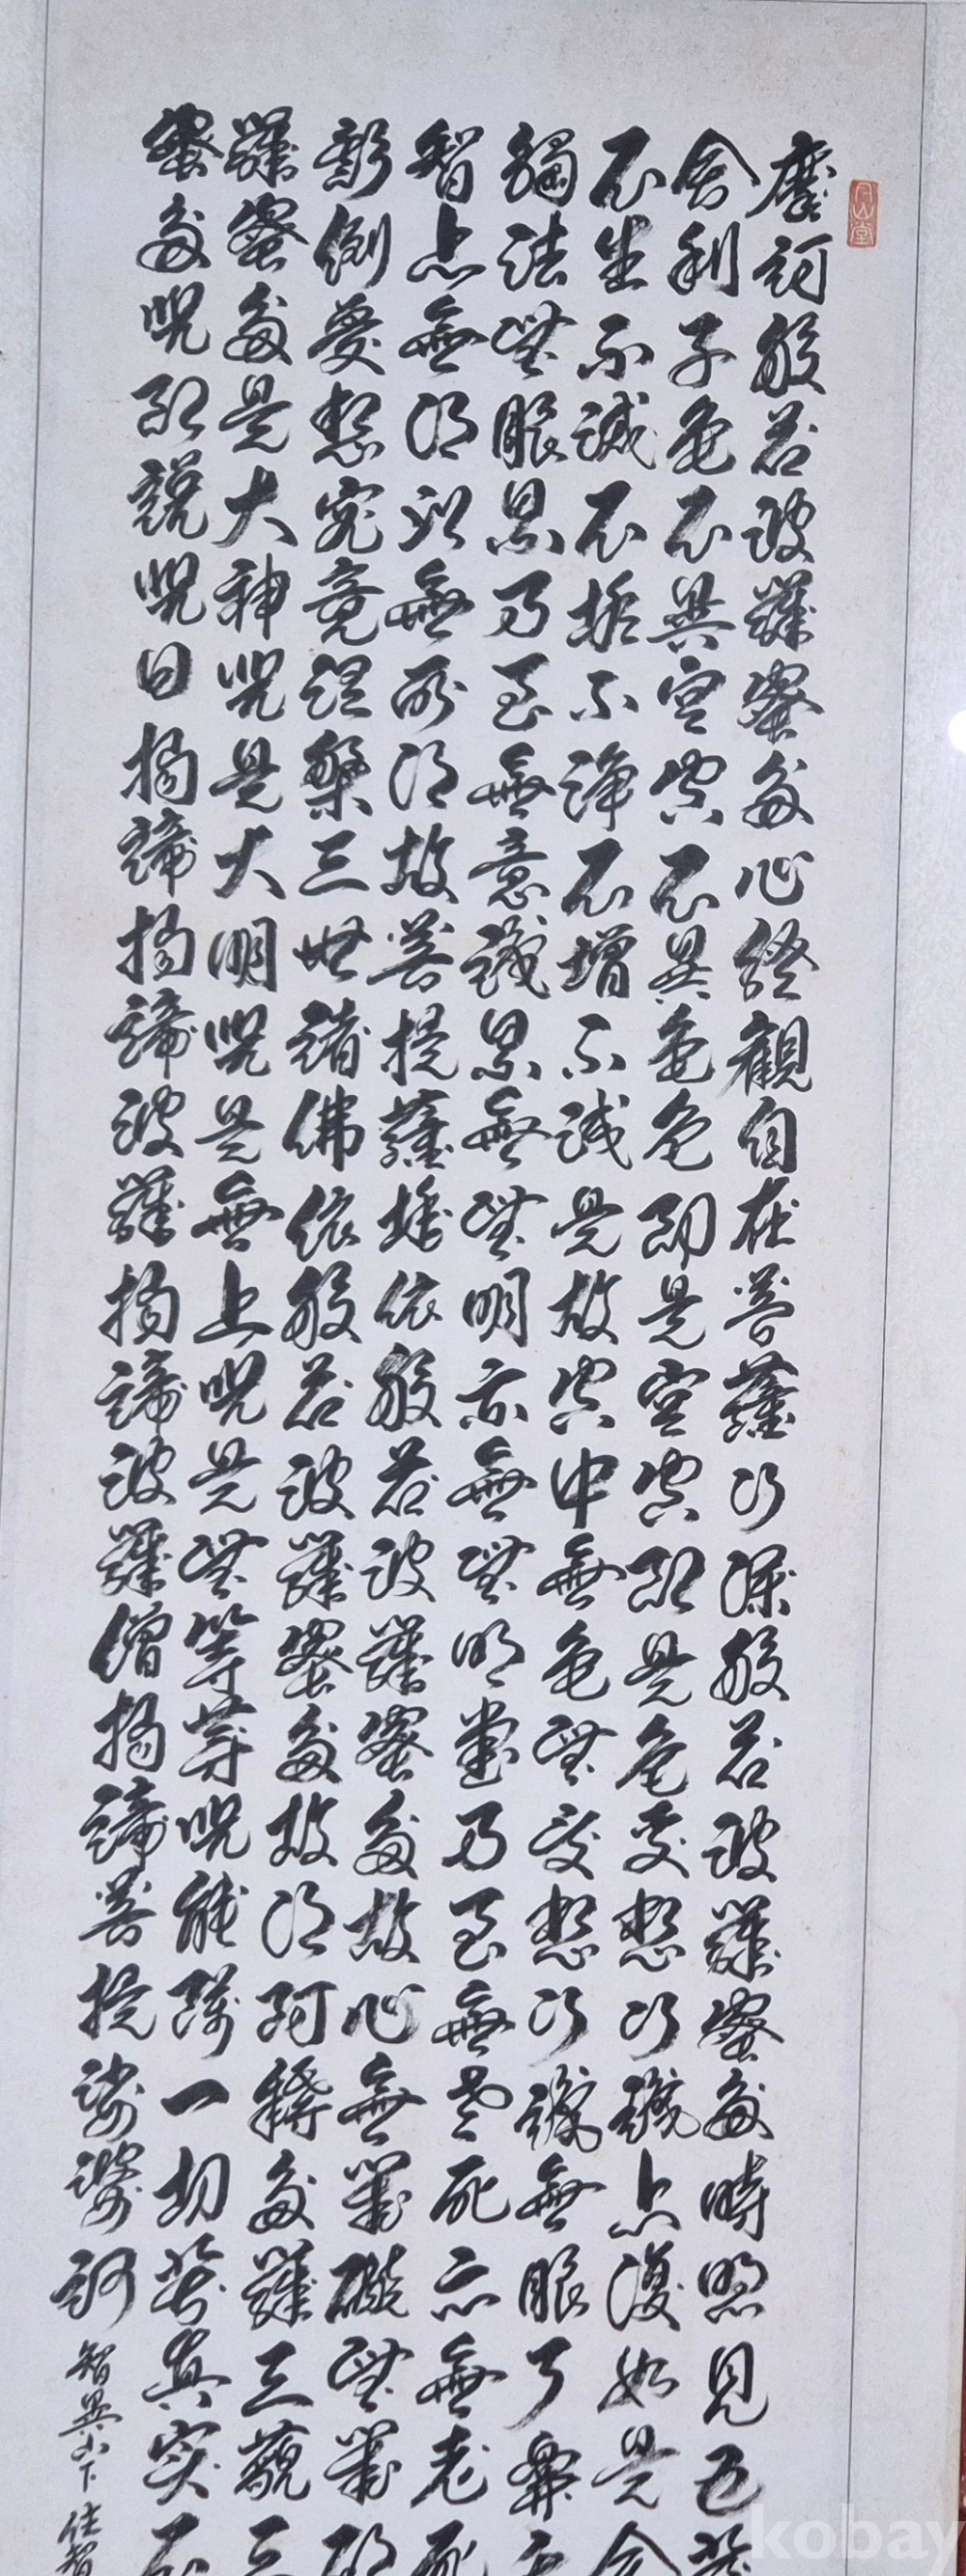 丹山堂
摩訶般若波羅蜜多心經觀自在菩薩行深般若波羅蜜多時照見五蘊
舍利子色不異空空不異色色即是空空即是色受想行識亦復如是舍
不生不滅不垢不淨不增不減是故空中無色無受想行識無眼耳鼻舌
觸法無眼界乃至無意識界無無明亦無無明盡乃至無老死亦無老死
智亦無得以無所得故菩提薩埵依般若波羅蜜多故心無罣礙無罣礙
顛倒夢想究竟涅槃三世諸佛依般若波羅蜜多故得阿耨多羅三藐三
羅蜜多是大神呪是大明呪是無上呪是無等等呪能除一切苦真實不
蜜多呪即說呪曰揭諦揭諦波羅揭諦波羅僧揭諦菩提娑婆訶
智異山下
kobay